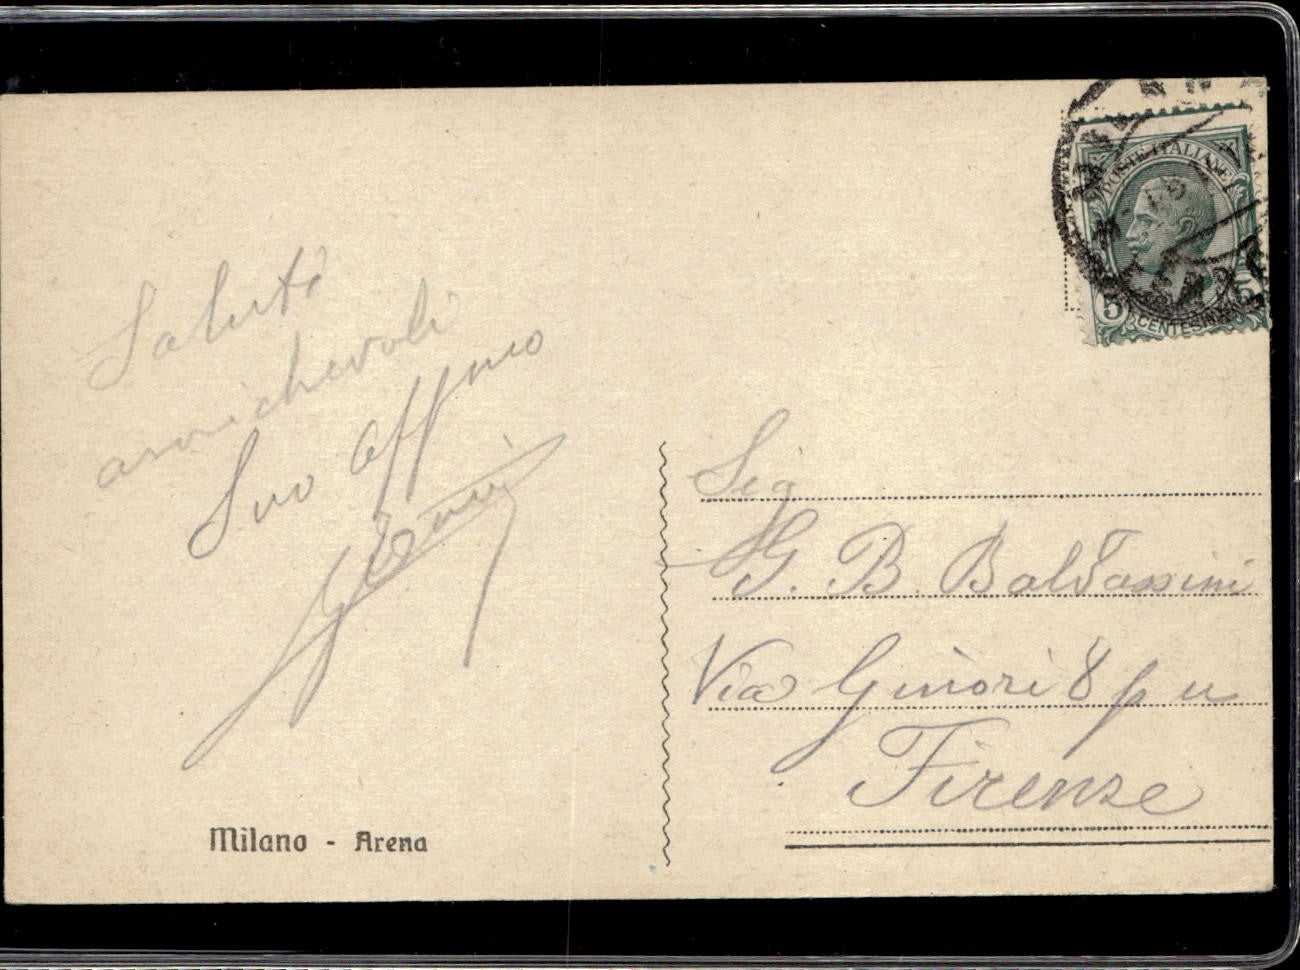 Saluti
amichevoli
Suo affmo
Sig
G. B. Baldassini
Via Ginori 8 p u
Firenze
Milano - Arena
POSTE ITALIANE
5 CENTESIMI 5